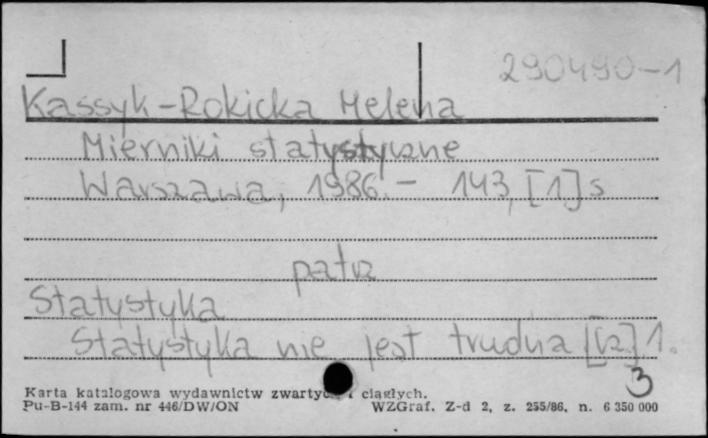 290490-1
Kassyk-Rokicka Helena
Mierniki statystyczne
Warszawa, 1986. - 143, [1] s
patrz
Statystyka
Statystyka nie jest trudna [cz] 1.
3
Karta katalogowa wydawnictw zwartych i ciągłych.
Pu-B-144 zam. nr 446/DW/ON WZGraf. Z-d 2, z. 255/86, n. 6 350 000